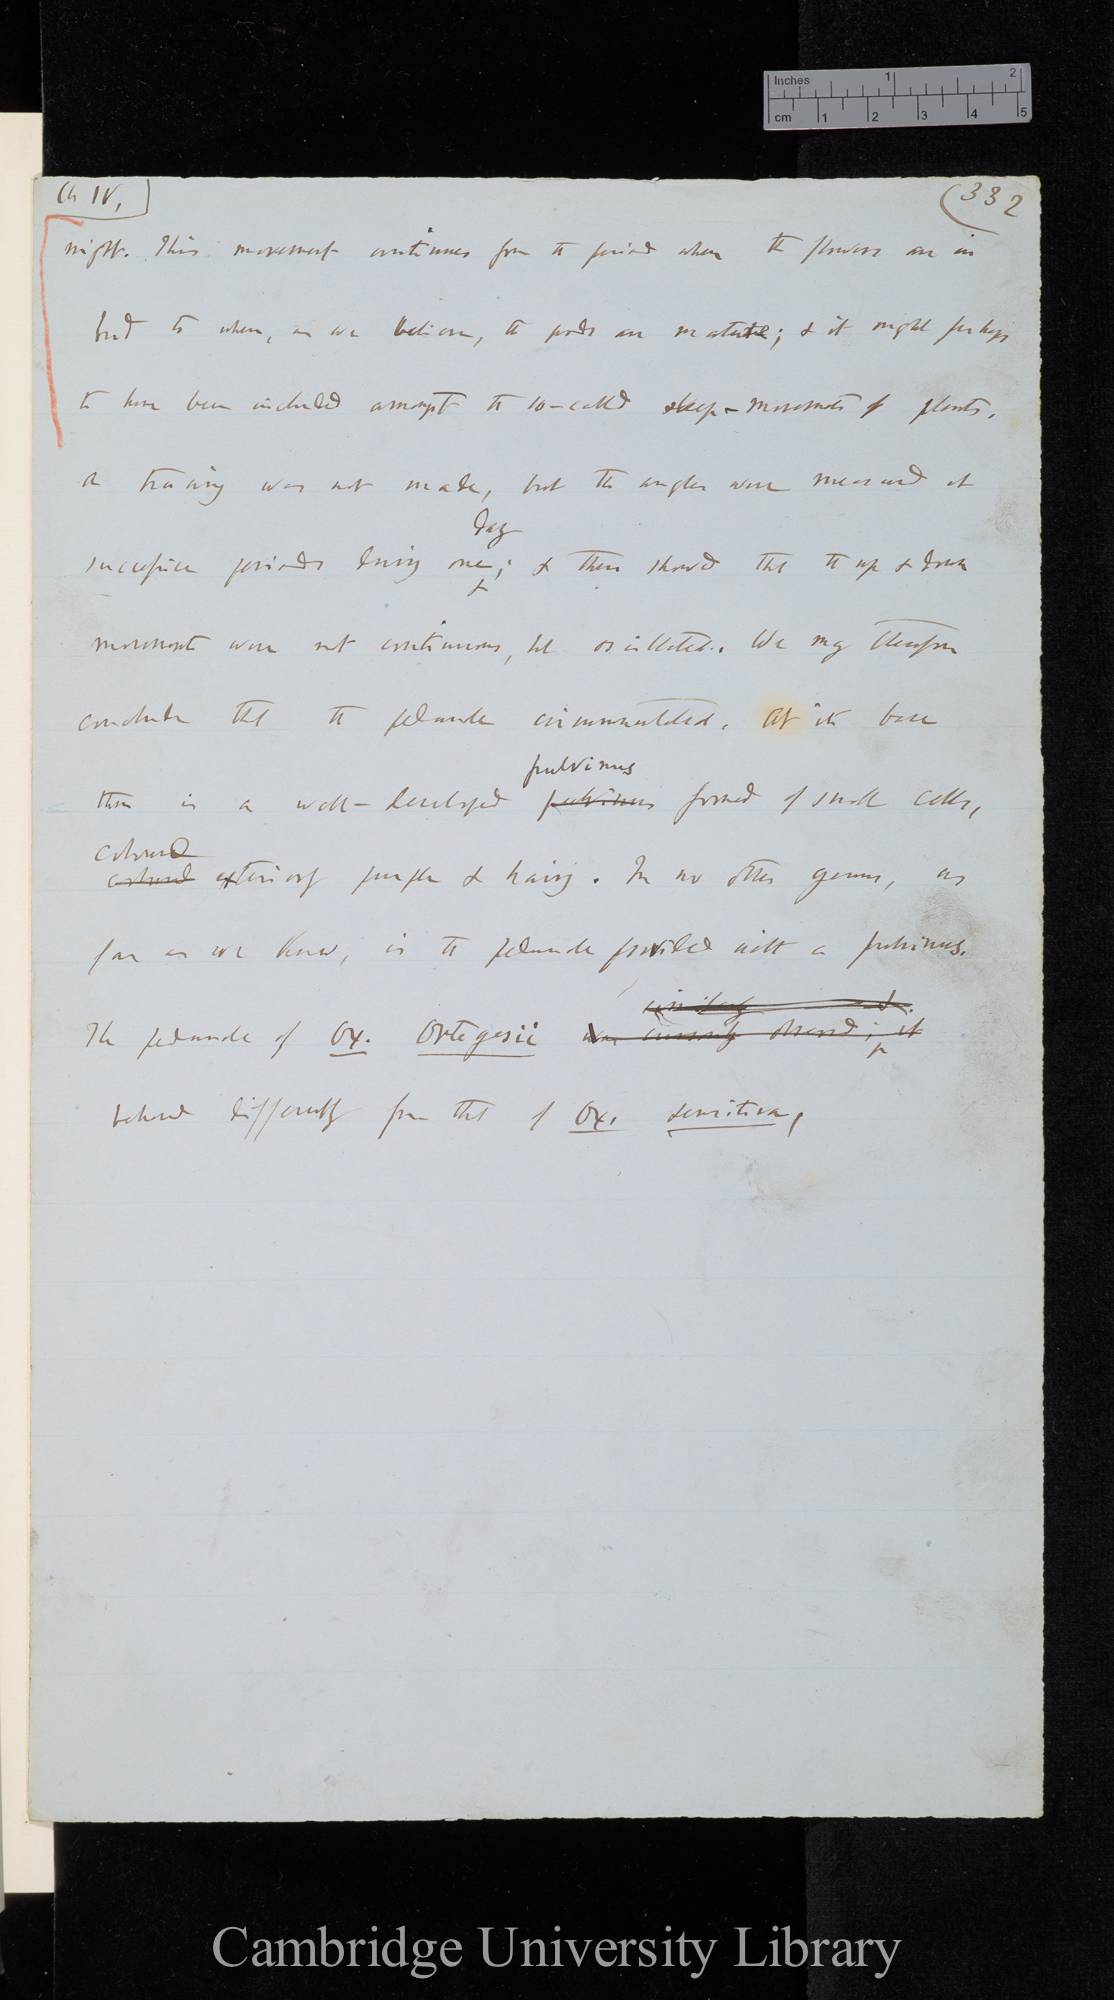 Inches 1 2
cm 1 2 3 4 5
Ch IV,
(332
night. This movement continues from the period when the flowers are in
bud to when, as we believe, the pods are mature; & it might perhaps
to have been included amongst the so-called sleep-movements of plants.
A tracing was not made, but the angles were measured at
day
successive periods during one; & these showed that the up & down
movements were not continuous, but oscillated. We may therefore
conclude that the peduncle circumnutated. At its base
pulvinus
there is a well-developed pulvinus formed of small cells,
coloured
coloured exteriorly purple & hairy. In no other genus, as
far as we know, is the peduncle provided with a pulvinus.
The peduncle of Ox. Ortegesii was cursorily observed; it
behaved differently from that of Ox. sensitiva,
Cambridge University Library